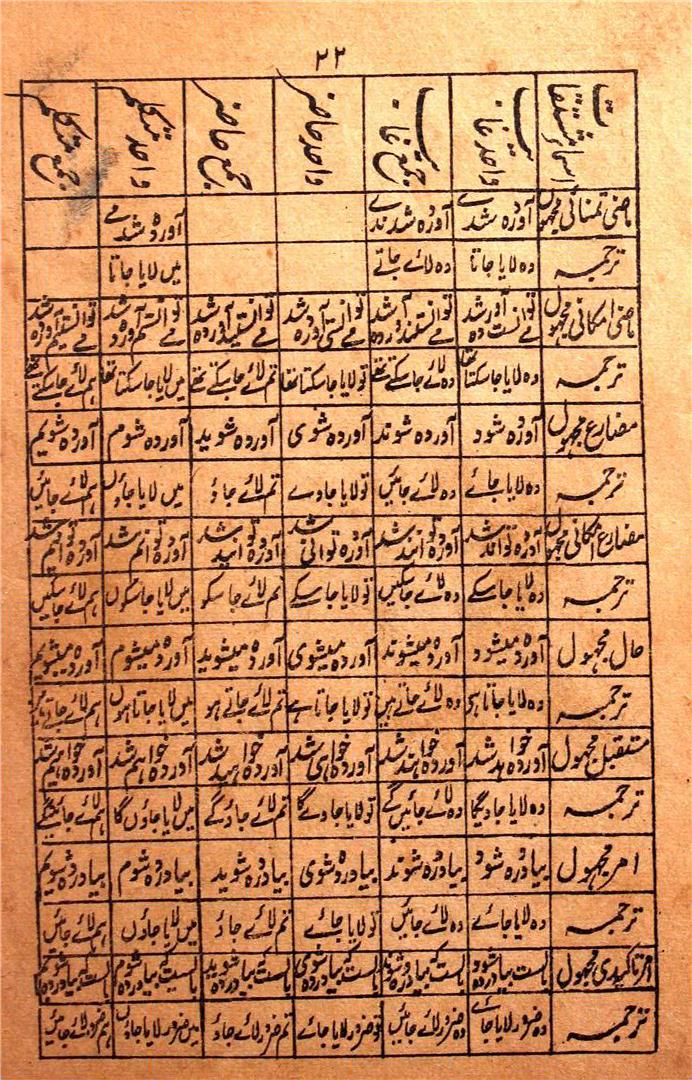 ۲۲
اسمائے مشتقات واحد غائب جمع غائب واحد حاضر جمع حاضر واحد متکلم جمع متکلم
ماضی تمنائی مجہول آوردہ شدے آوردہ شدندے آوردہ شدمے
ترجمہ وہ لایا جاتا وہ لائے جاتے میں لایا جاتا
ماضی امکانی مجہول مے توانست آوردہ شد مے توانستند آوردہ شد مے توانستی آوردہ شد مے توانستید آوردہ شد مے توانستم آوردہ شد مے توانستیم آوردہ شد
ترجمہ وہ لایا جا سکتا تھا وہ لائے جا سکتے تھے تو لایا جا سکتا تھا تم لائے جا سکتے تھے میں لایا جا سکتا تھا ہم لائے جا سکتے تھے
مضارع مجہول آوردہ شود آوردہ شوند آوردہ شوی آوردہ شوید آوردہ شوم آوردہ شویم
ترجمہ وہ لایا جائے وہ لائے جائیں تو لایا جاوے تم لائے جاؤ میں لایا جاؤں ہم لائے جائیں
مضارع امکانی مجہول آوردہ تواند شد آوردہ توانند شد آوردہ توانی شد آوردہ توانید شد آوردہ توانم شد آوردہ توانیم شد
ترجمہ وہ لایا جا سکے وہ لائے جا سکیں تو لایا جا سکے تم لائے جا سکو میں لایا جا سکوں ہم لائے جا سکیں
حال مجہول آوردہ میشود آوردہ میشوند آوردہ میشوی آوردہ میشوید آوردہ میشوم آوردہ میشویم
ترجمہ وہ لایا جاتا ہے وہ لائے جاتے ہیں تو لایا جاتا ہے تم لائے جاتے ہو میں لایا جاتا ہوں ہم لائے جاتے ہیں
مستقبل مجہول آوردہ خواہد شد آوردہ خواہند شد آوردہ خواہی شد آوردہ خواہید شد آوردہ خواہم شد آوردہ خواہیم شد
ترجمہ وہ لایا جاویگا وہ لائے جائیں گے تو لایا جاوے گا تم لائے جاؤ گے میں لایا جاؤں گا ہم لائے جائینگے
امر مجہول بیاوردہ شود بیاوردہ شوند بیاوردہ شوی بیاوردہ شوید بیاوردہ شوم بیاوردہ شویم
ترجمہ وہ لایا جائے وہ لائے جائیں تو لایا جائے تم لائے جاؤ میں لایا جاؤں ہم لائے جائیں
امر تاکیدی مجہول بایست کہ بیاوردہ شود بایست کہ بیاوردہ شوند بایست کہ بیاوردہ شوی بایست کہ بیاوردہ شوید بایست کہ بیاوردہ شوم بایست کہ بیاوردہ شویم
ترجمہ وہ ضرور لایا جائے وہ ضرور لائے جائیں تو ضرور لایا جائے تم ضرور لائے جاؤ میں ضرور لایا جاؤں ہم ضرور لائے جائیں